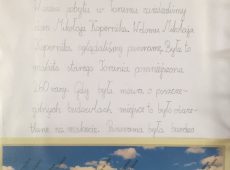 pobytu w Toruniu zwiedziliśmy
dom Mikołaja Kopernika. W domu Mikołaja
Kopernika oglądaliśmy panoramę. Była to
makieta starego Torunia pomniejszona
razy. Gdy była mowa o poszcze-
gólnych budowlach miejsce to było oświe-
tlane na makiecie. Panorama była bardzo